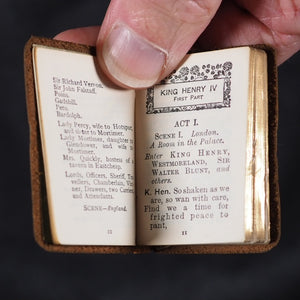 Sir Richard Vernon.
Sir John Falstaff.
Poins.
Gadshill.
Peto.
Bardolph.
Lady Percy, wife to Hotspur,
and sister to Mortimer.
Lady Mortimer, daughter to
Glendower, and wife to
Mortimer.
Mrs. Quickly, hostess of a
tavern in Eastcheap.
Lords, Officers, Sheriff,
vellers, Chamberlain,
ners, Drawers, two Carriers,
and Attendants.
SCENE—England.
KING HENRY IV
FIRST PART
ACT I.
SCENE I. London.
A Room in the Palace.
Enter KING HENRY,
WESTMORELAND, SIR
WALTER BLUNT, and
others.
K. Hen. So shaken as we
are, so wan with care,
Find we a time for
frighted peace to
pant,